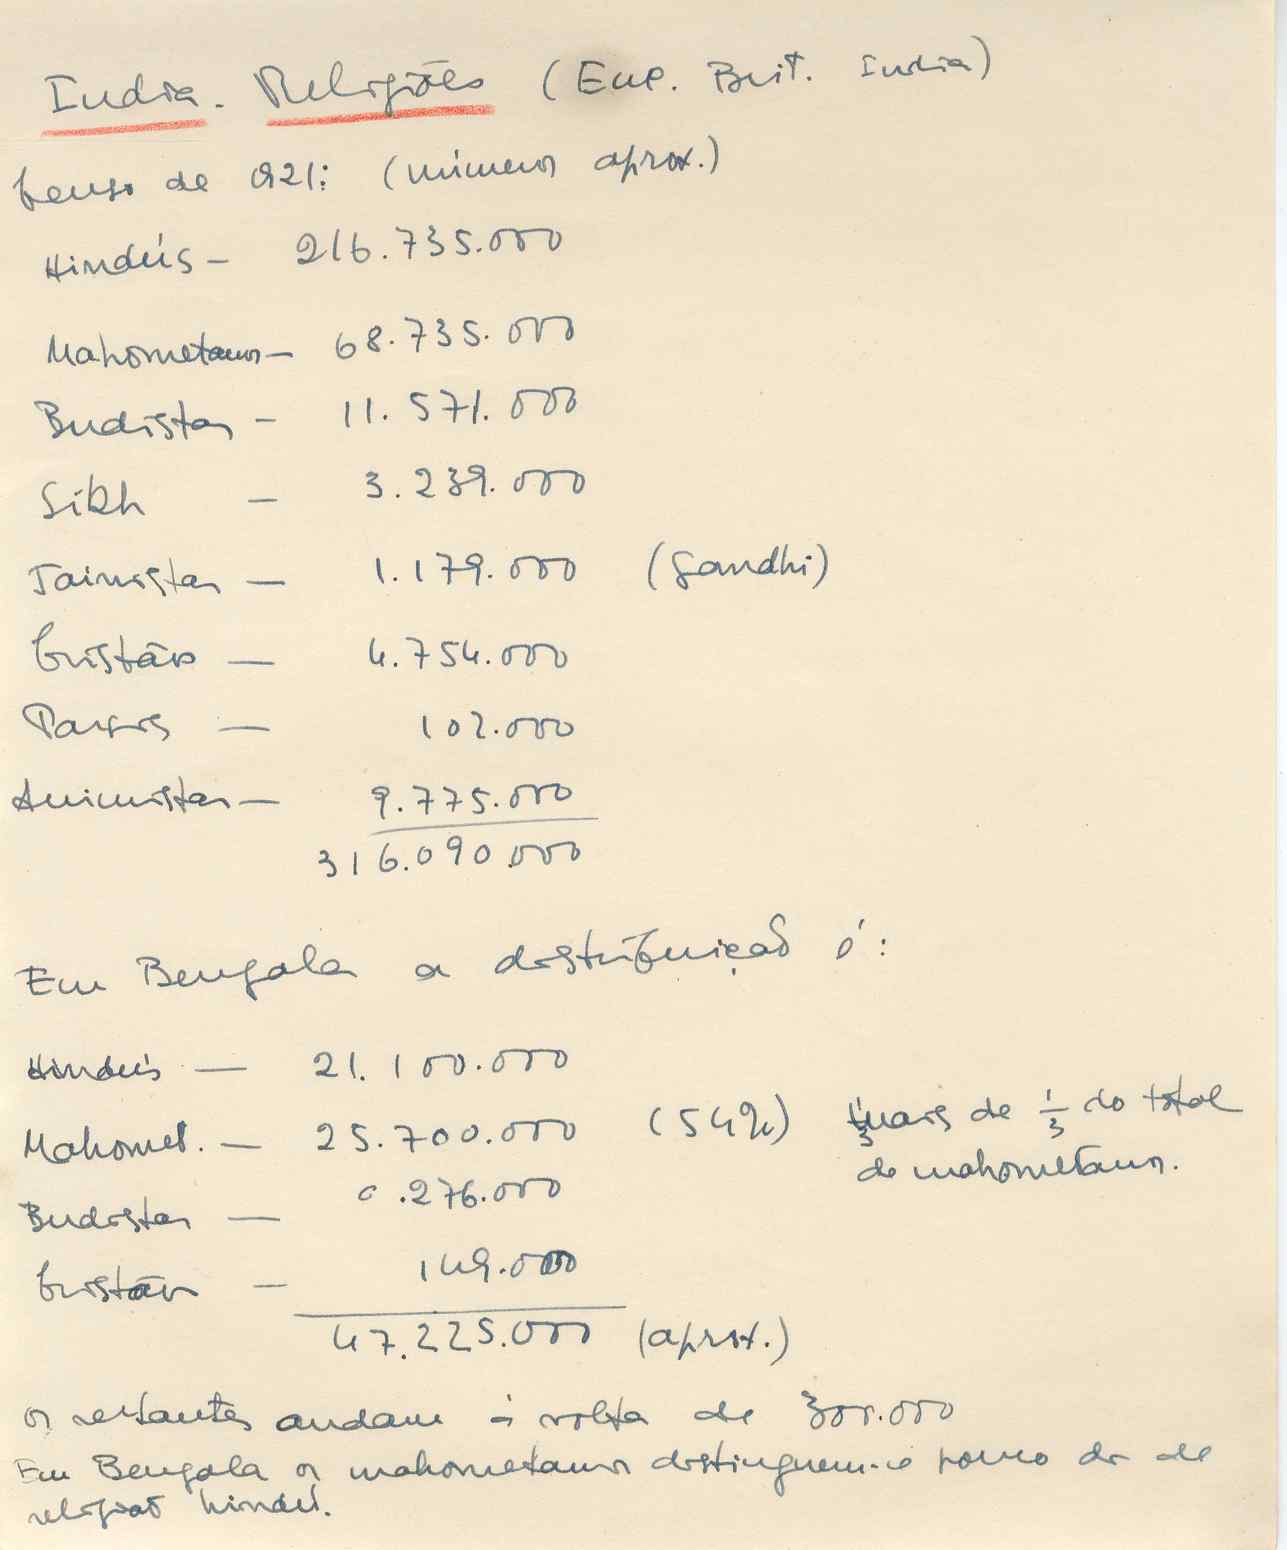 India. Religiões (Enc. Brit. India)
Censo de 921: (números aprox.)
Hindús - 216.735.000
Mahometanos - 68.735.000
Budistas - 11.571.000
Sikh - 3.239.000
Jainistas - 1.179.000 (Gandhi)
Cristãos - 4.754.000
Parsis - 102.000
Animistas - 9.775.000
316.090.000
Em Bengala a distribuição é:
Hindús - 21.100.000
Mahomet. - 25.700.000 (54%) mais de 1/3 do total
de mahometanos.
Budistas - 0.276.000
Cristãos - 149.000
47.225.000 (aprox.)
os restantes andam à volta de 300.000
Em Bengala os mahometanos distinguem-se pouco dos de
religião hindú.